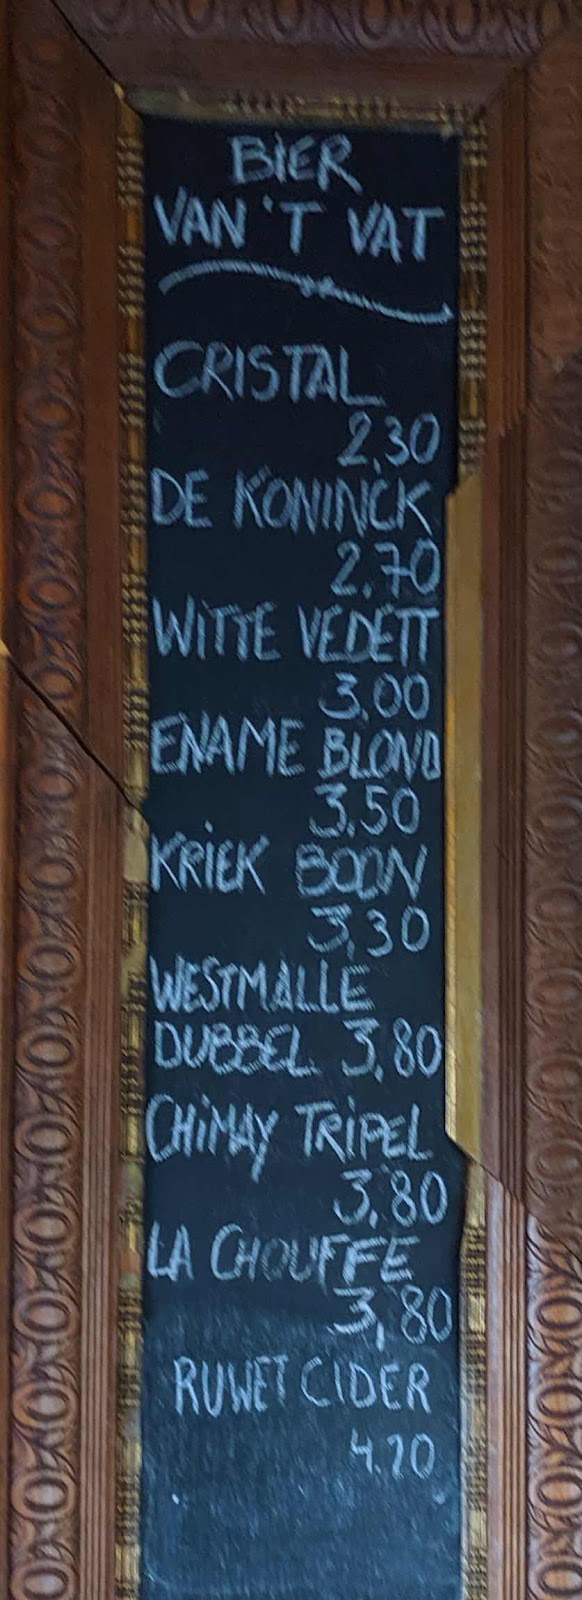 BIER
VAN 'T VAT
CRISTAL
2.30
DE KONINCK
2.70
WITTE VEDETT
3.00
ENAME BLOND
3.50
KRIEK BOON
3.30
WESTMALLE
DUBBEL 3.80
CHIMAY TRIPEL
3.80
LA CHOUFFE
3,80
RUWET CIDER
4.20